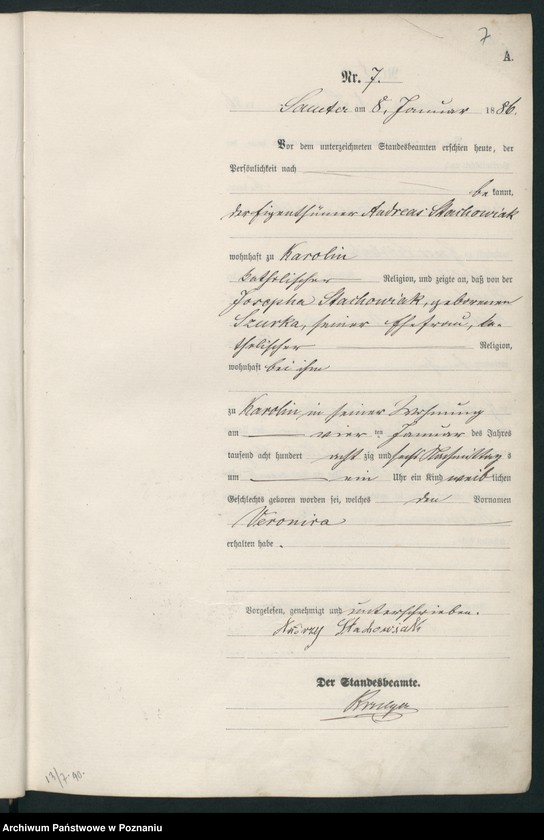 7
A.
Nr. 7.
Samter am 8. Januar 1886.
Vor dem unterzeichneten Standesbeamten erschien heute, der
Persönlichkeit nach
bekannt,
der Eigenthümer Andreas Stachowiak
wohnhaft zu Karolin
katholischer Religion, und zeigte an, daß von der
Josepha Stachowiak, geborenen
Szurka, seiner Ehefrau, ka-
tholischer Religion,
wohnhaft bei ihm
zu Karolin in seiner Wohnung
am vier ten Januar des Jahres
tausend acht hundert acht zig und sechs Nachmittag s
um ein Uhr ein Kind weiblichen
Geschlechts geboren worden sei, welches den Vornamen
Veronica
erhalten habe.
Vorgelesen, genehmigt und unterschrieben.
Andrzy Stachowiak
Der Standesbeamte.
13/7.90.
Archiwum Państwowe w Poznaniu